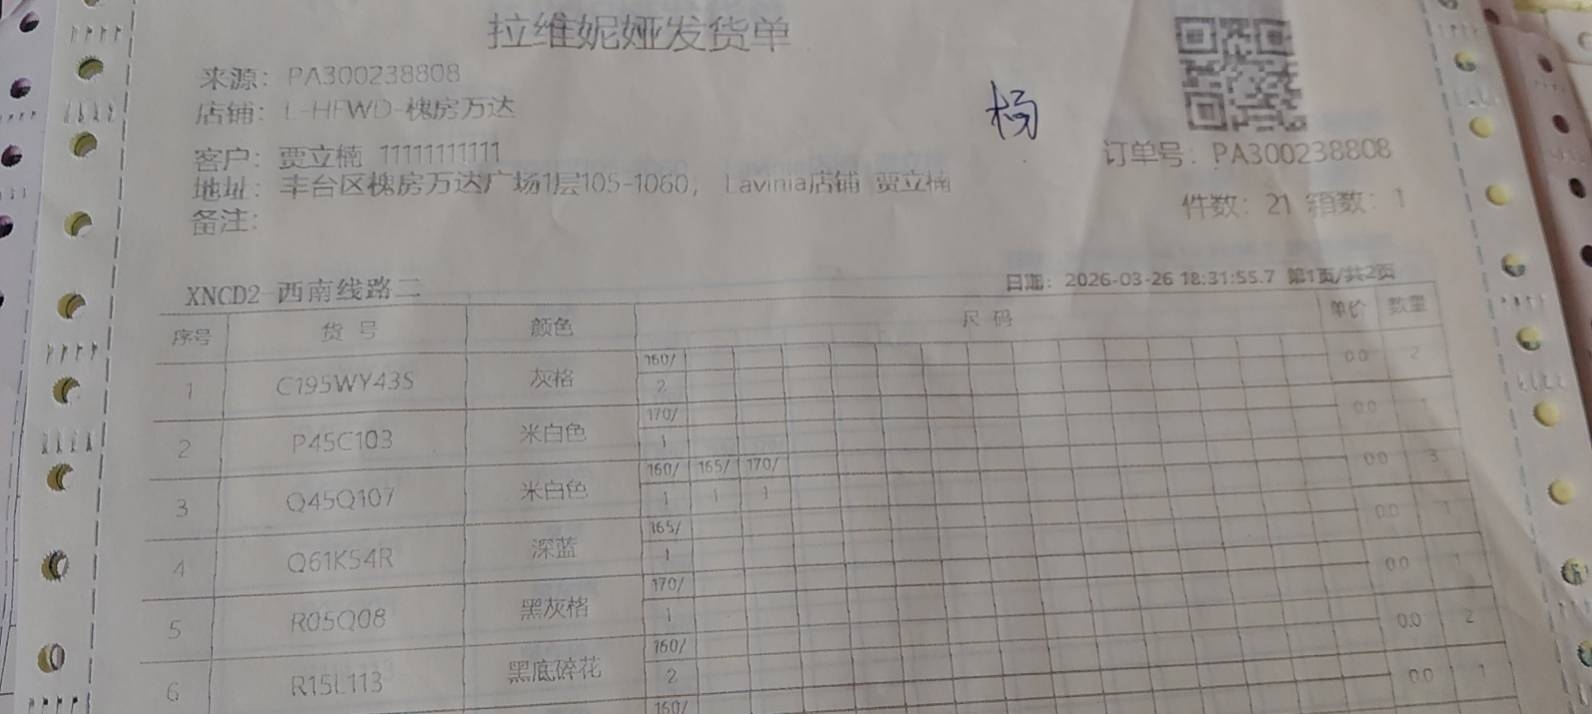 拉维妮娅发货单
来源：PA300238808
店铺：L-HFWD-槐房万达
杨
客户：贾立楠 11111111111
订单号：PA300238808
地址：丰台区槐房万达广场1层105-1060， Lavinia店铺 贾立楠
件数：21 箱数：1
备注：
XNCD2-西南线路二
日期：2026-03-26 18:31:55.7 第1页/共2页
序号 货号 颜色 尺码 单价 数量
160/
1 C195WY43S 灰格 2 0.0 2
170/
2 P45C103 米白色 1 0.0 1
160/ 165/ 170/
3 Q45Q107 米白色 1 1 1 0.0 3
165/
4 Q61K54R 深蓝 1 0.0 1
170/
5 R05Q08 黑灰格 1 0.0 1
160/
6 R15L113 黑底碎花 2 0.0 2
160/
0.0 1